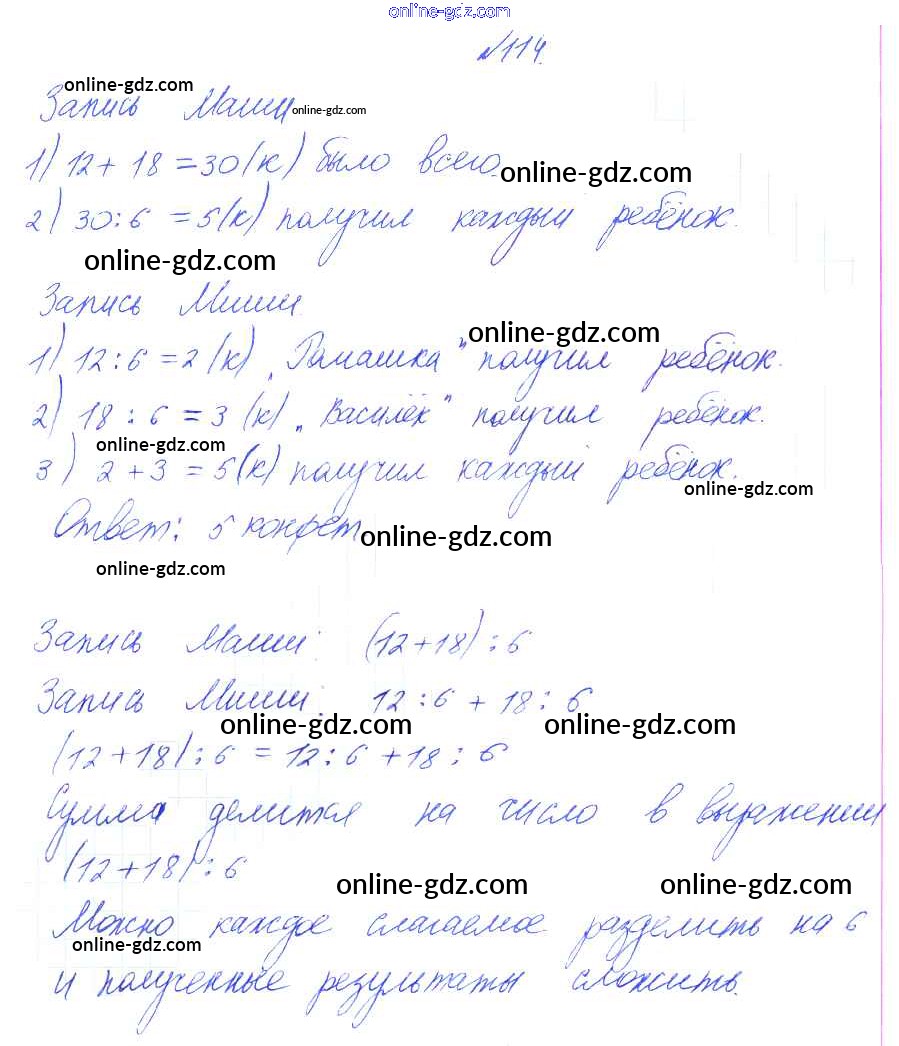 online-gdz.com
№114.
online-gdz.com
Запись Маши online-gdz.com
1) 12 + 18 = 30 (к) было всего. online-gdz.com
2) 30 : 6 = 5 (к) получил каждый ребёнок.
online-gdz.com
Запись Миши.
online-gdz.com
1) 12 : 6 = 2 (к) „Ромашка" получил ребёнок.
2) 18 : 6 = 3 (к) „Василёк" получил ребёнок.
online-gdz.com
3) 2 + 3 = 5 (к) получил каждый ребёнок.
online-gdz.com
Ответ: 5 конфет online-gdz.com
online-gdz.com
Запись Маши: (12 + 18) : 6
Запись Миши: 12 : 6 + 18 : 6
online-gdz.com online-gdz.com
(12 + 18) : 6 = 12 : 6 + 18 : 6
Сумма делится на число в выражении
(12 + 18) : 6
online-gdz.com online-gdz.com
Можно каждое слагаемое разделить на 6
online-gdz.com
и полученные результаты сложить.